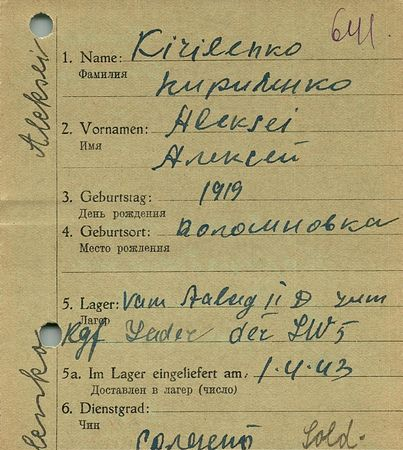 641.
Aleksei
1. Name: Kirilenko
Фамилия Кириленко
2. Vornamen: Aleksei
Имя Алексей
3. Geburtstag: 1919
День рождения
4. Geburtsort:
Место рождения
5. Lager: vom Stalag II D zum
Лагер
Kgf der
5a. Im Lager eingeliefert am, 1.4.43
Доставлен в лагер (число)
6. Dienstgrad:
Чин Sold.
lenko